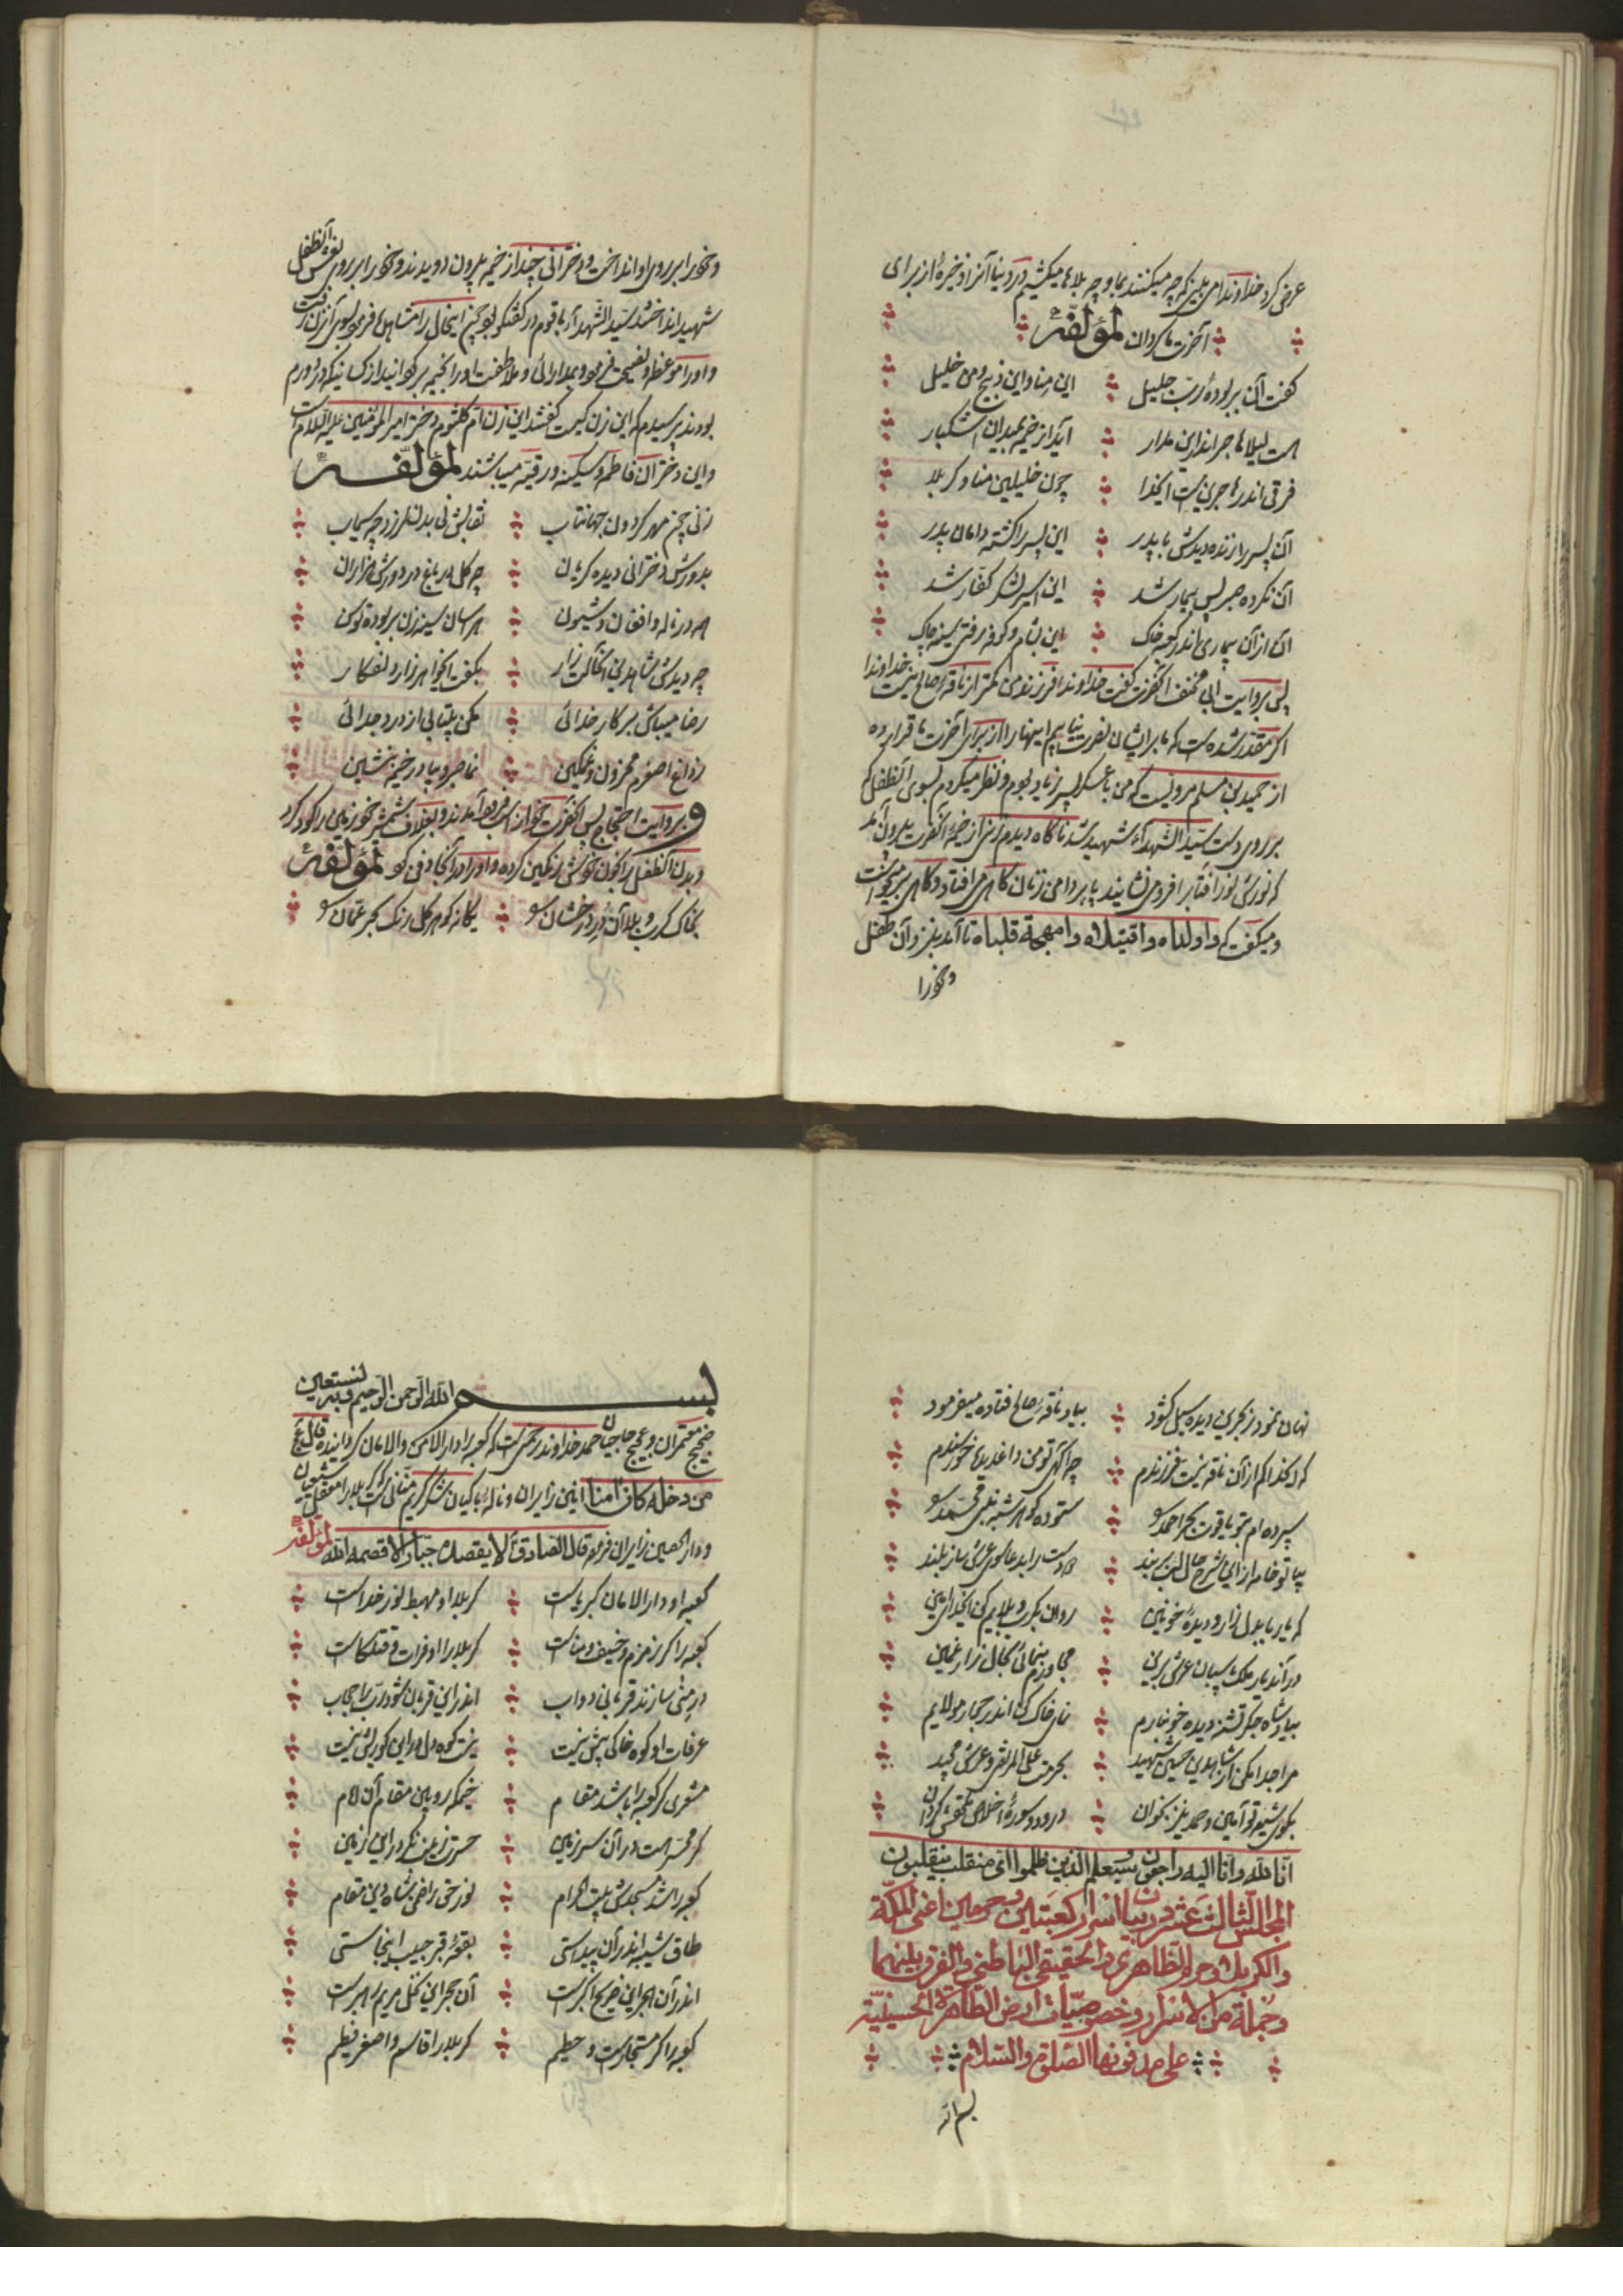 عرض کرد خداوندا می بینی که چه میکنند بما و چه بلاها میکشیم در دنیا آنرا ذخیرهٔ از برای
آخرت ما گردان لمؤلفه
گفت آن بر بوده رب جلیل این منا و این ذبیح و من خلیل
هست لیلا هاجر اندر این مدار آید از خیمه بمیدان اشکبار
فرقی اندر ماجری نیست ایخدا چون خلیلین منا و کربلا
آن پسر را زنده دیدش با پدر این پسر را کشته دامان پدر
آن نکرده صبر پس بیمار شد این اسیر لشکر کفار شد
آن از آن بیماری اندر کعبه خاک این بشام و کوفه رفتی سینه چاک
پس بروایت ابی مخنف آنحضرت گفت خداوندا فرزند من کمتر از ناقهٔ صالح نیست خداوندا
اگر مقدر شده است که ما بر ایشان نصرت نیابیم اینها را از برای آخرت ما قرار ده
از حمید بن مسلم مرویست که من با عسکر پسر زیاد بودم و نظر میکردم بسوی آنطفل که
بر روی دست سید الشهداء شهید شد ناگاه دیدم زنی از خیمهٔ آنحضرت بیرون آمد
که نورش نور آفتاب را فرو می نشانید پا بر دامن زنان گاهی می افتاد و گاهی بر میخواست
و میگفت که واولداه واقتیلاه وامهجة قلباه تا آمد بنزد آن طفل
و خود را
و خود را بر روی او انداخت و دخترانی چند از خیمه بیرون دویدند و خود را بر روی نعش آنطفل
شهید انداختند سید الشهداء با قوم در گفتگو بود چون اینحال را مشاهده فرمود بسوی آن زن رفت
و او را موعظه و نصیحت فرمود و بمدارائی و ملاطفت او را بخیمه برگردانید از کسانیکه در دورم
بودند پرسیدم که این زن کیست گفتند این زن ام کلثوم دختر امیر المؤمنین علیه السلام است
و این دختران فاطمه و سکینه و رقیه میباشند لمؤلفه
زنی چون مهر گردون جهانتاب نقابش نی بدن لرزد چه سیماب
بدورش دخترانی دیده گریان چه گل در باغ در دورش هزاران
همه در ناله و افغان و شیون هراسان سینه زن
چه دیدش شاه دین احالت زار بگفت ایخواهر زار دلفکار
رضا میباش بر کار خدائی مکن بیتابی از درد جدائی
ز داغ اصغرم محزون و غمگین نما صبر و بیا در خیمه بنشین
و بروایت احتجاج پس آنحضرت خود از اسب فرود آمدند و بغلاف شمشیر خود زمین را گود کرد
و بدن آنطفل را بخون خویش رنگین کرده و او را در آنجا دفن کرد لمؤلفه
بخاک کرب و بلا آن در درخشان سو یگانه گوهر گلرنگ بحر عمان سو
نهان نمود ز بحرین دیده سیل گشود بیاد ناقهٔ صالح فتاده میفرمود
که ای خدا کم از آن ناقه نیست فرزندم چه آگهی تو من داغدیده خورسندم
سپرده ام بتو یاقوت بحر احمد سو ستوده گوهر شبه نبی محمد سو
بیا تو خامه از این شرح حال لب بربند دو دست را بدعا سوی عرش ساز بلند
که یا رب با دل زار و دیدهٔ خونین روان بکرب و بلایم کن ایخدا بهمین
در آن دیار ملک پاسبان عرش برین مجاورم بنمائی بحال زار غمین
بیاد شاه جگر تشنه دیده خونبارم نمای خاک کن اندر جوار مولایم
مرا جدا مکن از شاه دین حسین شهید بحرمت علی المرتضی و عرش مجید
بگوی شیعه تو آمین و حمد نیز بخوان درود و سورهٔ اخلاص تحفه اش گردان
انا لله وانا الیه راجعون وسیعلم الذین ظلموا ای منقلب ینقلبون
المجلس الثالث عشر در بیان اسرار کعبتین و حرمین اعنی المکة
والکربلا و حرم الظاهری والحقیقی الباطنی والفرق بینهما
وجملة من الاسرار و خصوصیات ارض الطاهرة الحسینیة
علی مدفونها الصلوة والسلام
بسم الله
بسم الله الرحمن الرحیم وبه نستعین
ضجیج معتمران و عجیج حاجیان حمد خداوند رحمنی است که کعبه را دار الامن والامان گردانیده قال عج
من دخله کان امنا انین زایران و ناله باکیان شکر کریم منانی است که کربلا را معقل شیعیان
و دار الحصین زایران فرمود قال الصادق لا یقصده جبار الا قصمه الله لمؤلفه
کعبه او دار الامان کبریاست کربلا او مهبط نور خداست
کعبه را گر زمزم و خیف و مناست کربلا را او فرات و قتلگاست
در منی سازند قربانی دواب اندر این قربان شود رب احباب
عرفات او کوه خاکی بیش نیست
مشعری گر کعبه را باشد مقام خیمگه رو بین مقام آن امام
گر محسر است در آن سرزمین حسرت زینب نگر در این زمین
کعبه را شد مسجدش بیت الحرام نور حق را ضد بشاه دین مقام
طاق شیبه اندر آن پیداستی بقعهٔ قبر حبیب اینجاستی
اندر آن حجر این ضریح اکبر است آن حجر این نخل مریم را بر است
کعبه را گر مستجار است و حطیم کربلا را قاسم و اصغر فطیم